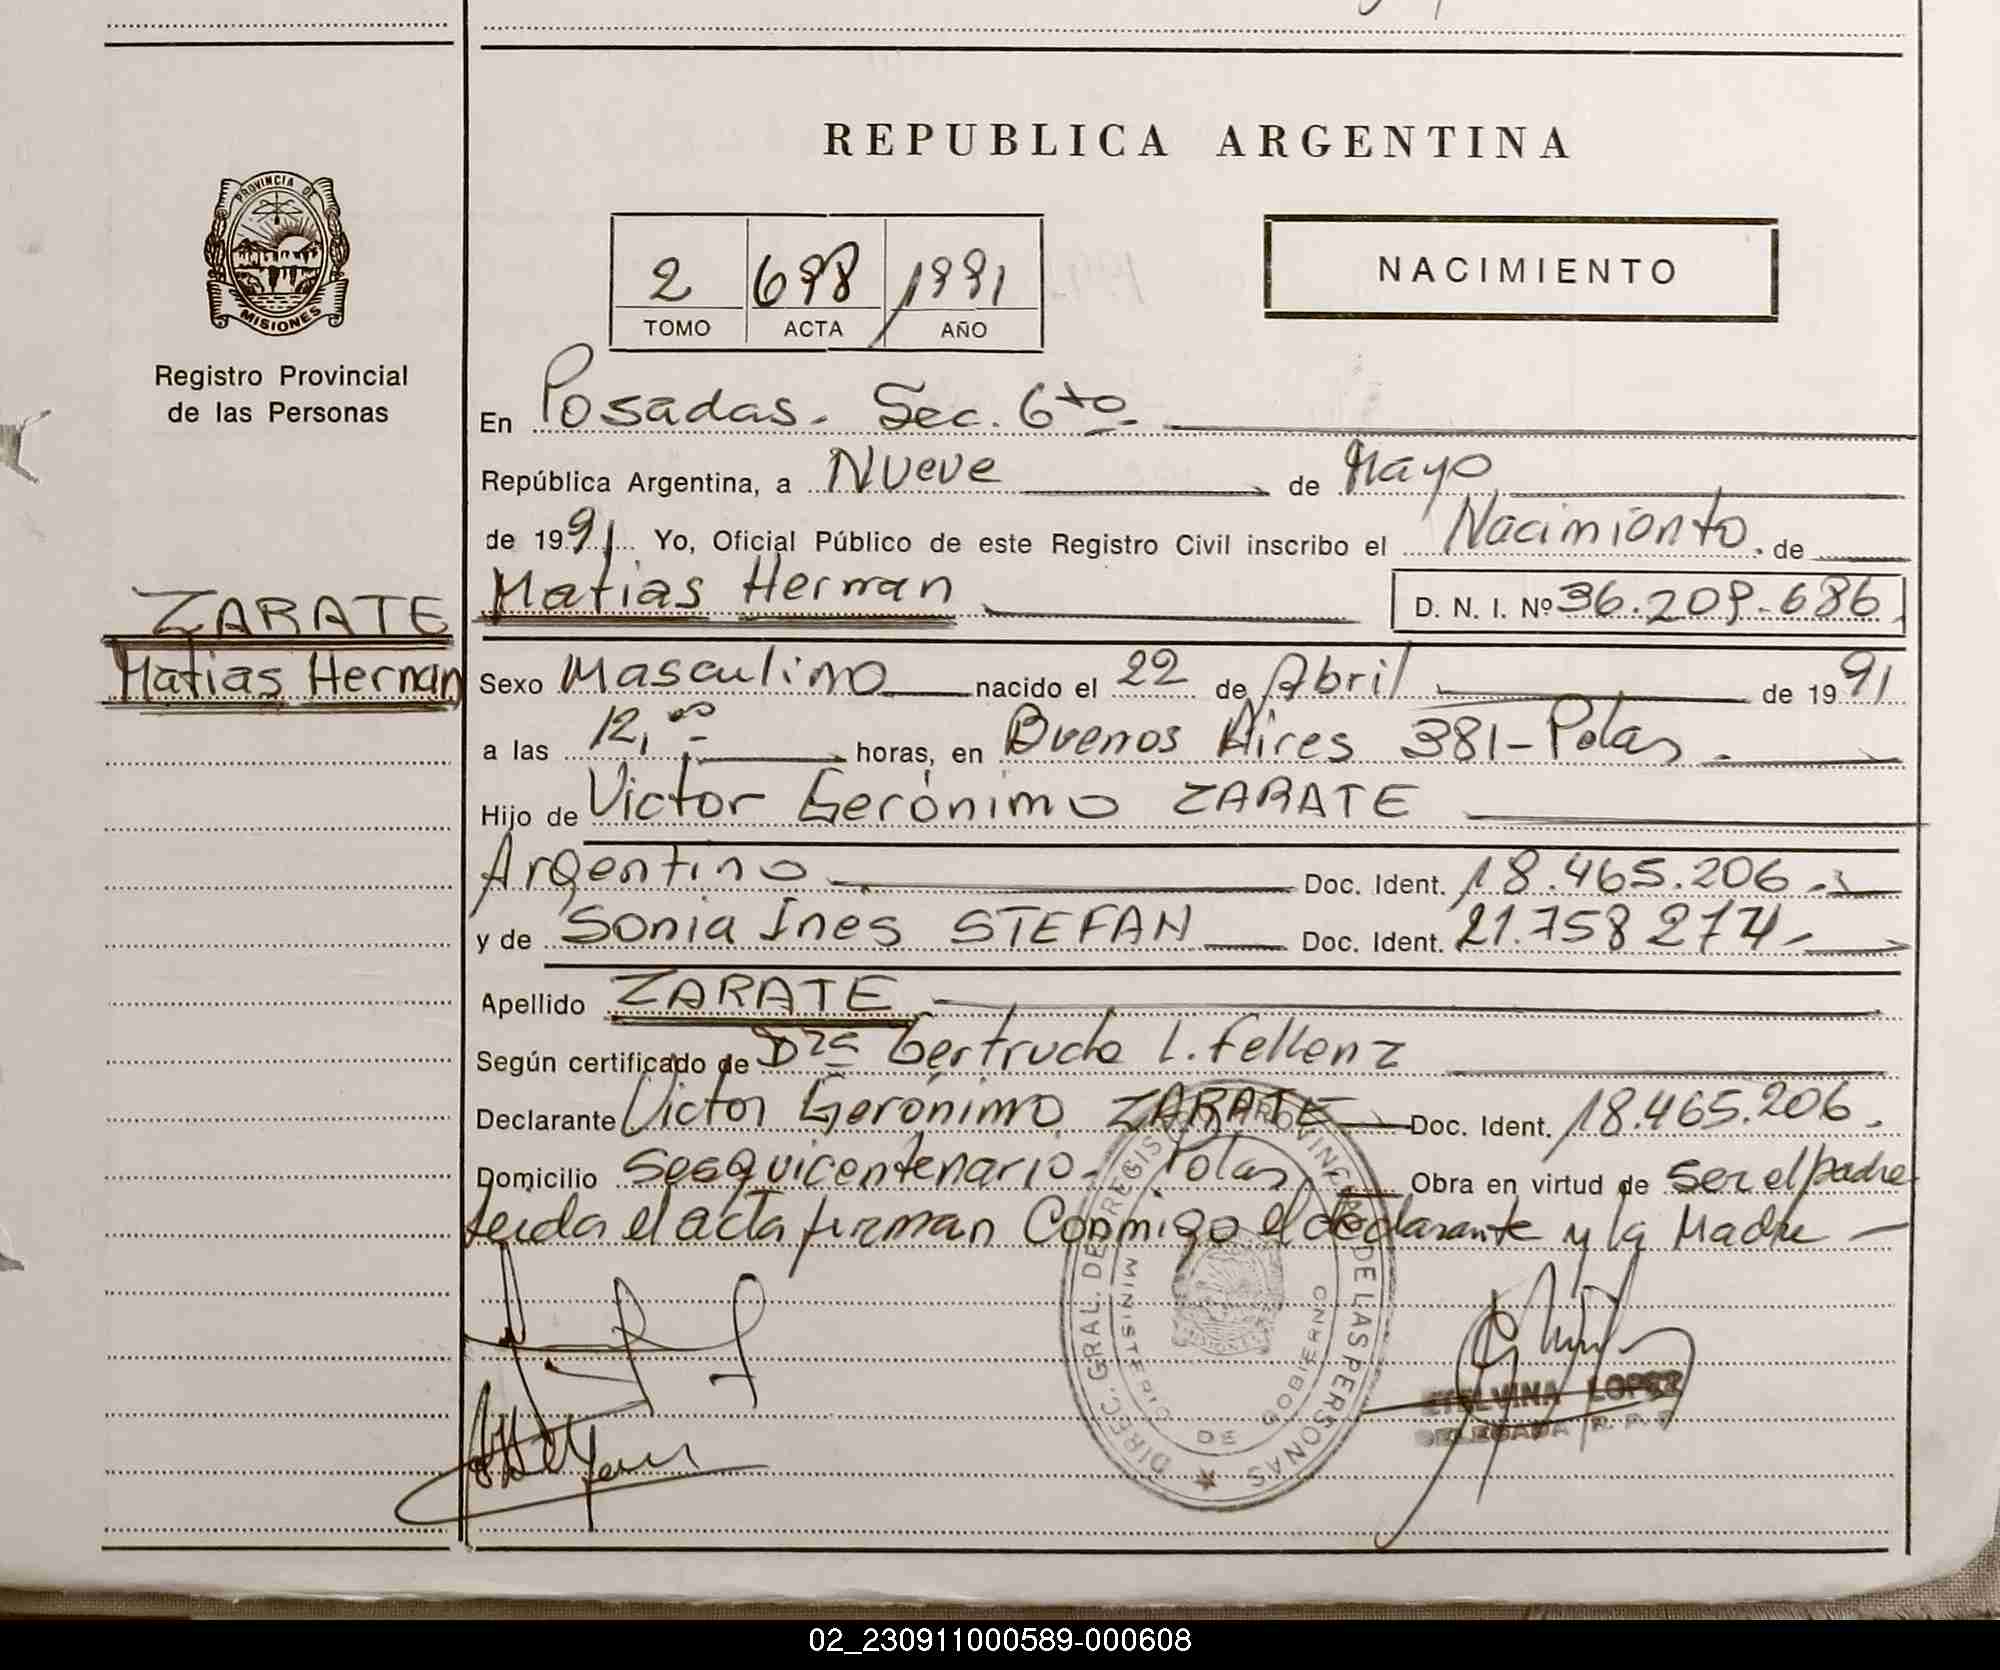 REPUBLICA ARGENTINA
PROVINCIA DE
MISIONES
Registro Provincial
de las Personas
2 698 1991
TOMO ACTA AÑO
NACIMIENTO
En Posadas. Sec. 6to
República Argentina, a Nueve de Mayo
de 1991 Yo, Oficial Público de este Registro Civil inscribo el Nacimiento. de
ZARATE
Matias Hernan
Matias Hernan D. N. I. Nº 36.209.686
Sexo Masculino nacido el 22 de Abril de 1991
a las 12,00 horas, en Buenos Aires 381-Pdas.
Hijo de Victor Gerónimo ZARATE
Argentino Doc. Ident. 18.465.206.
y de Sonia Ines STEFAN Doc. Ident. 21.758 274
Apellido ZARATE
Según certificado de Dra Gertrudo L. Fellenz
Declarante Victor Gerónimo ZARATE Doc. Ident. 18.465.206.
Domicilio Sesquicentenario. Pdas. Obra en virtud de ser el padre
Leida el acta firman Conmigo el declarante y la Madre
DIREC. GRAL. DE REGISTRO PROVINCIAL DE LAS PERSONAS
MINISTERIO DE GOBIERNO
ETELVINA LOPEZ
DELEGADA R. P. P
02_230911000589-000608